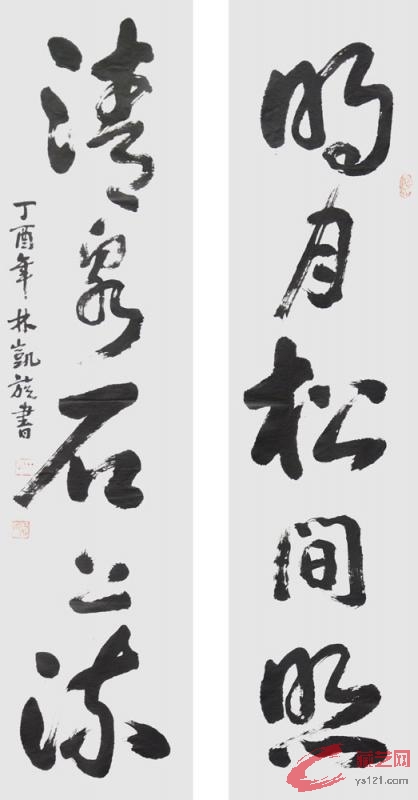 明月松间照
清泉石上流
丁酉年林凯旋書
藏艺网
ys121.com